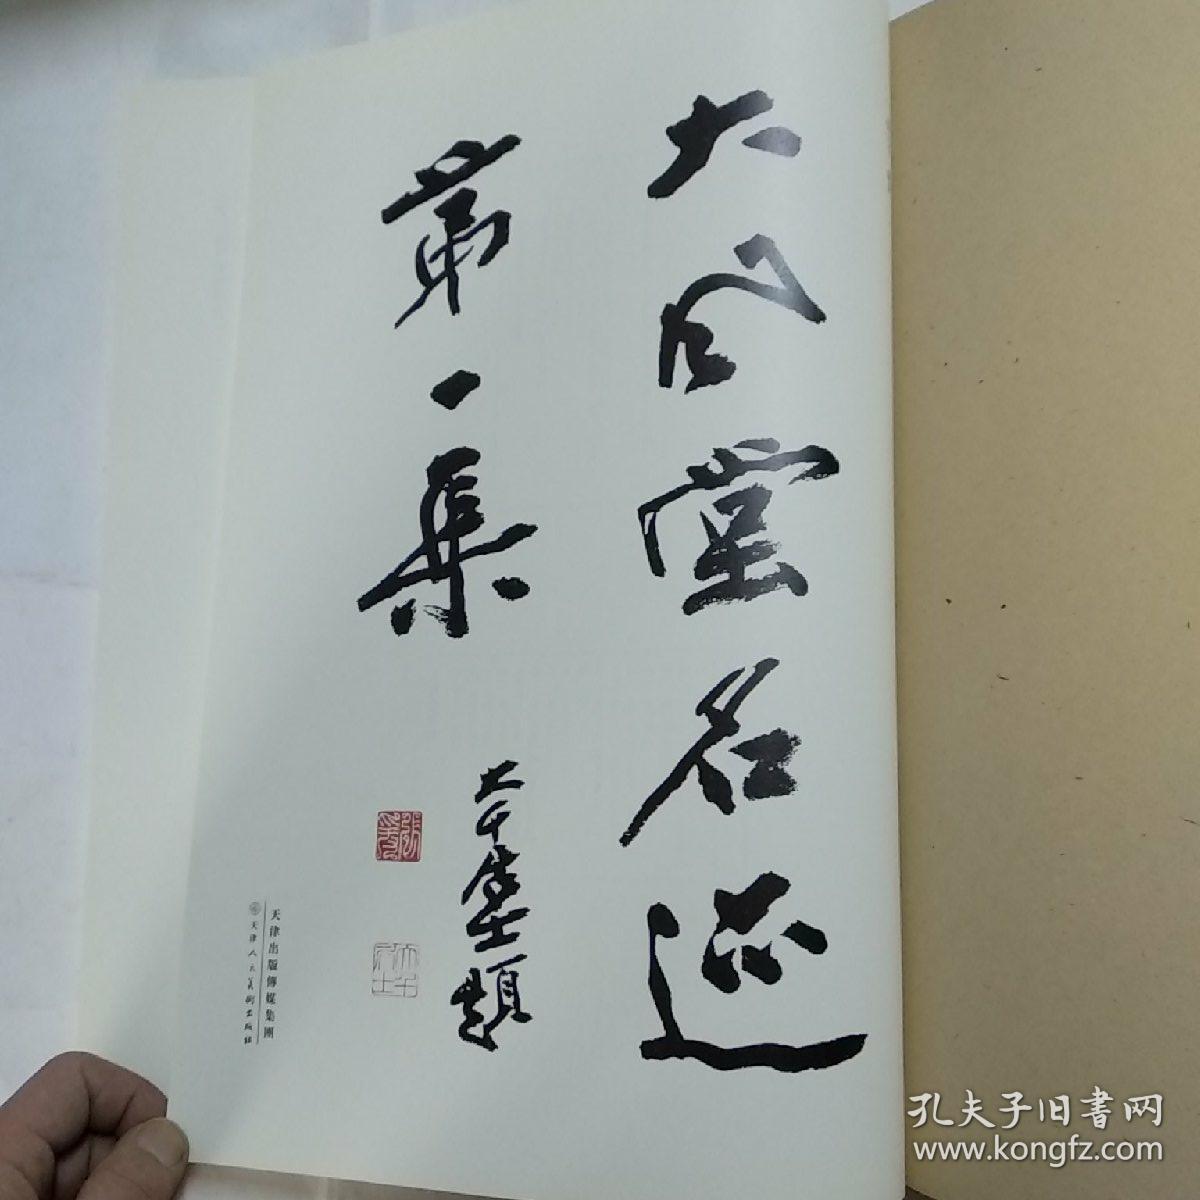 大风堂名迹
第一集
大千居士题
天津出版傳媒集團
天津人民美術出版社
孔夫子旧書网
www.kongfz.com